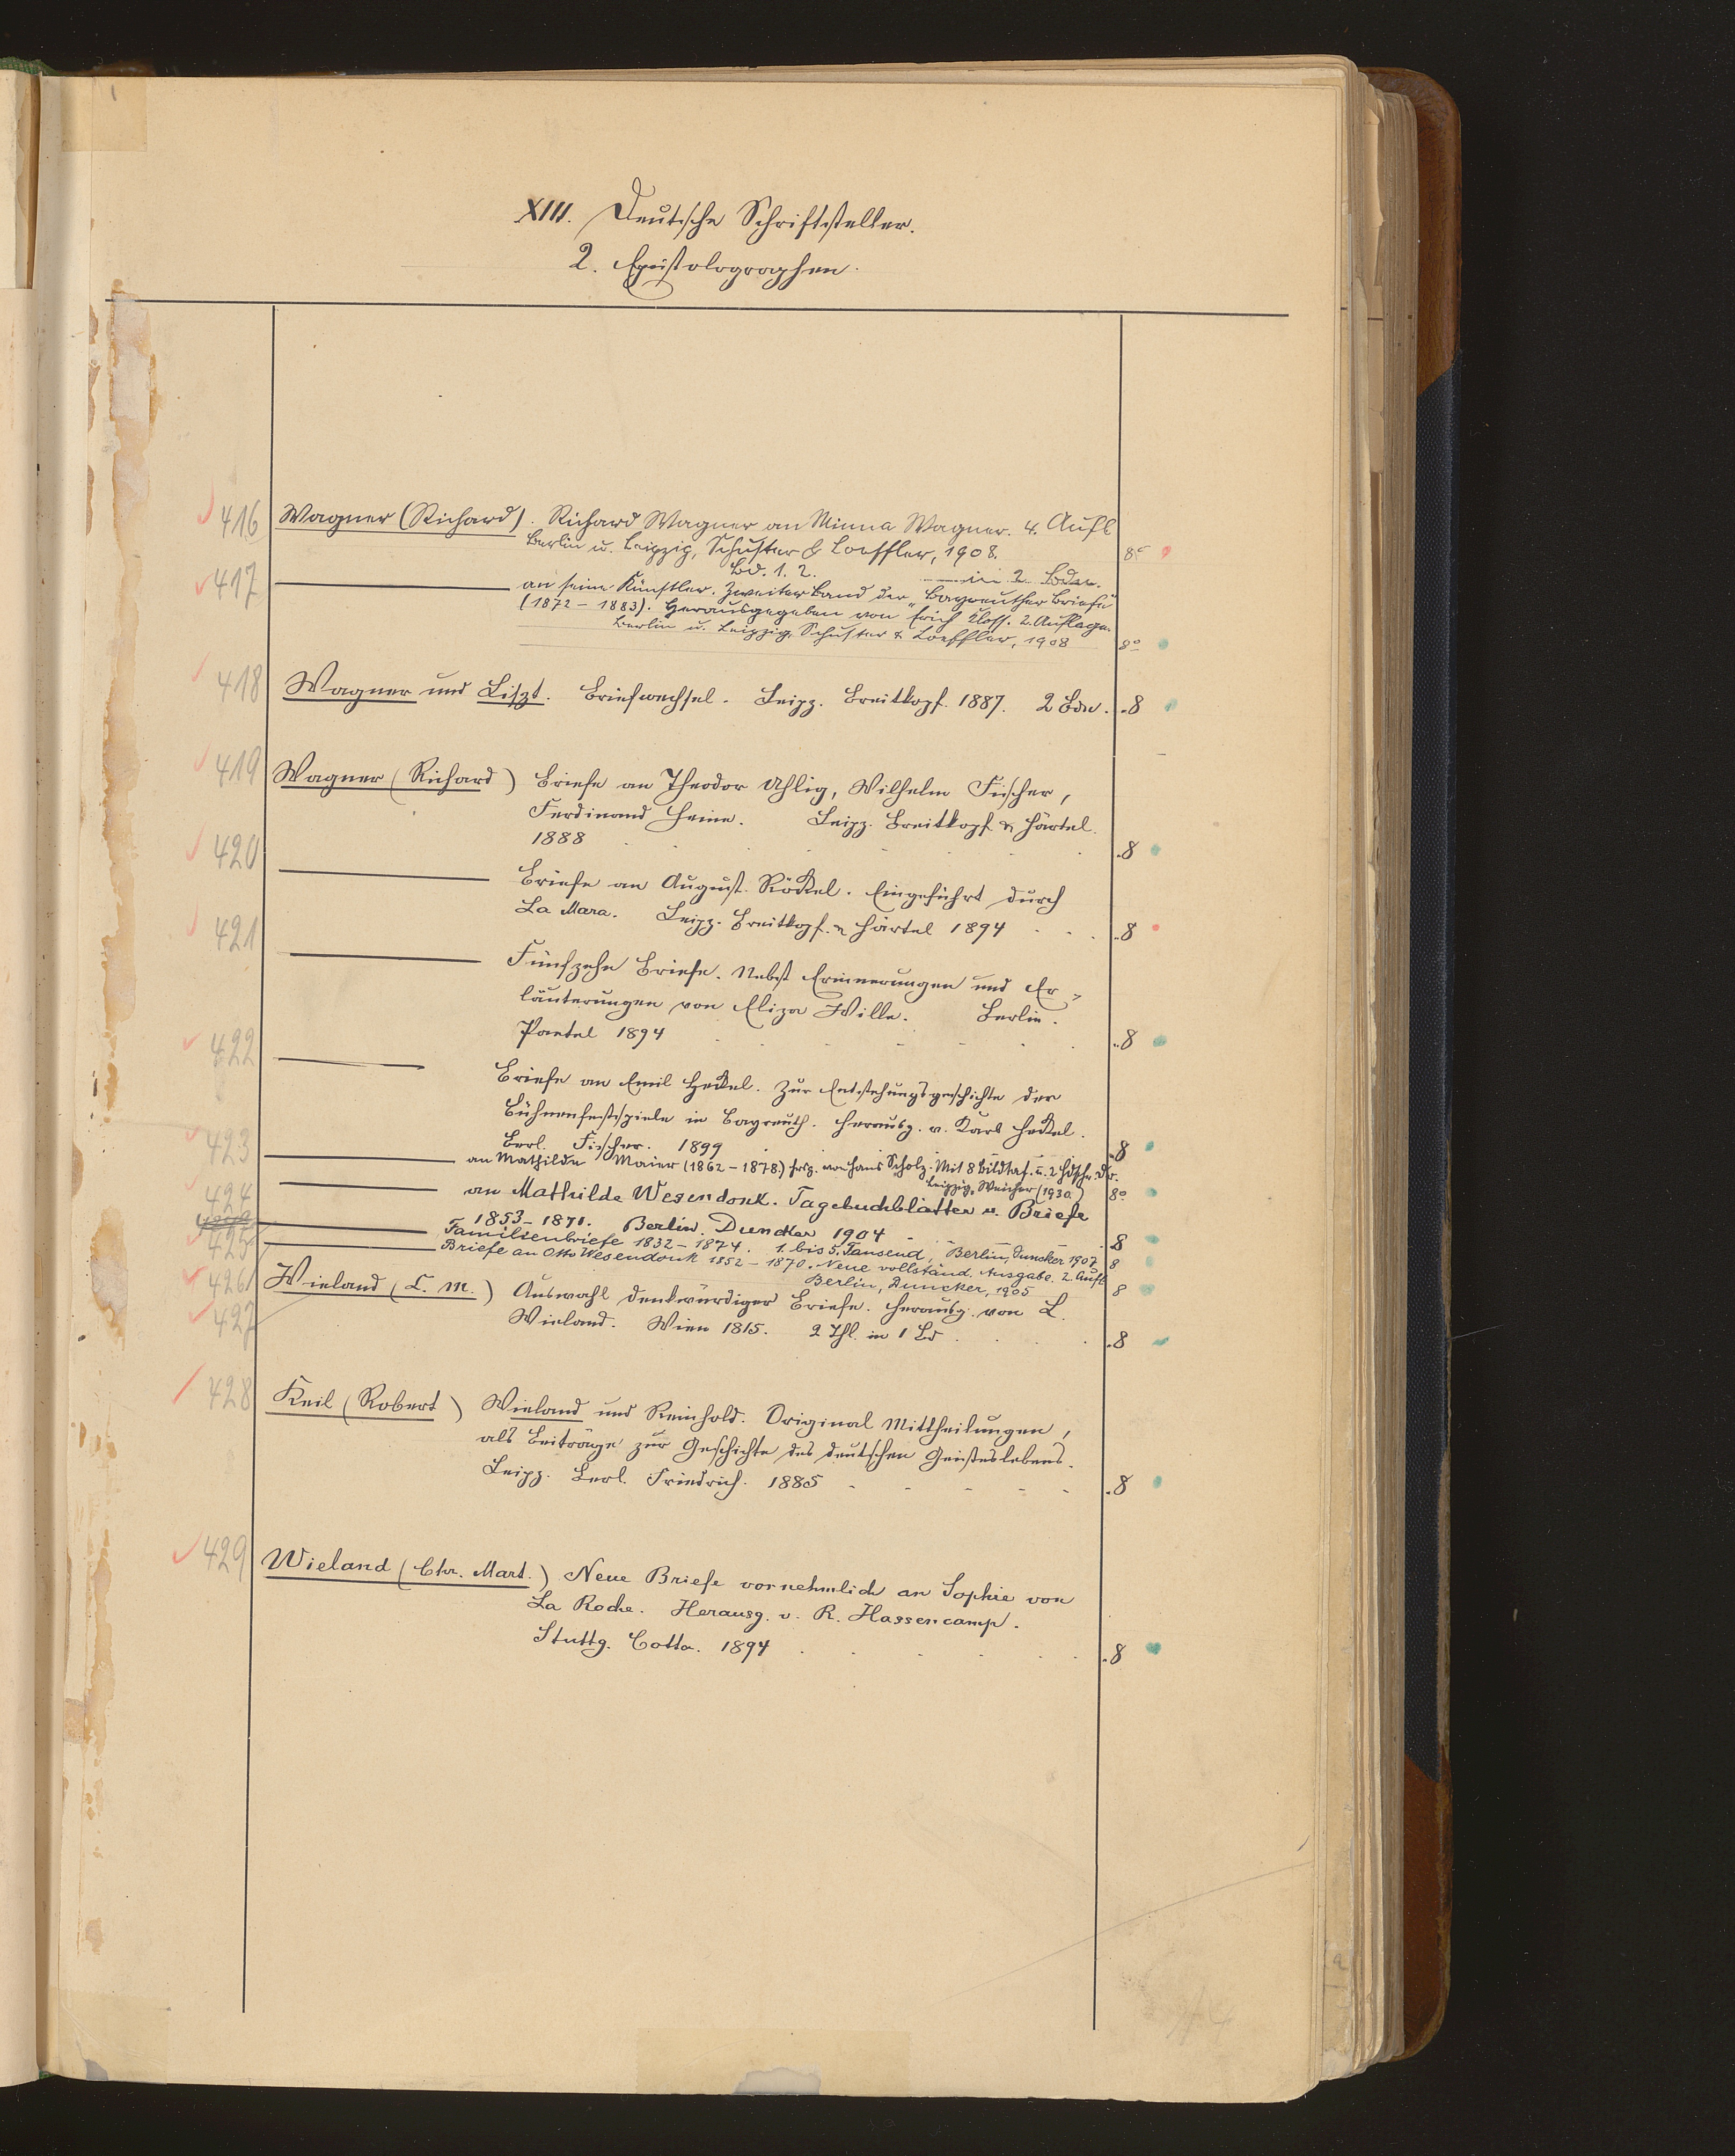 XIII. Deutsche Schriftsteller.
2. Epistolographen.
416 Wagner (Richard). Richard Wagner an Minna Wagner. 4. Aufl
Berlin u. Leipzig, Schuster & Loeffler, 1908. 8°
Bd. 1. 2. in 2 Bden.
417 an seine Künstler. Zweiter Band der "Bayreuther Briefe"
(1872 - 1883). Herausgegeben von Erich Kloss. 2. Auflage.
Berlin u. Leipzig, Schuster & Loeffler, 1908 8°
418 Wagner und Liszt. Briefwechsel. Leipz. Breitkopf. 1887. 2 Bde. 8
419 Wagner (Richard) Briefe an Theodor Uhlig, Wilhelm Fischer,
Ferdinand Heine. Leipz. Breitkopf & Härtel.
1888 8
420 Briefe an August Röckel. Eingeführt durch
La Mara. Leipz. Breitkopf & Härtel 1894 8
421 Fünfzehn Briefe. Nebst Erinnerungen und Er-
läuterungen von Eliza Wille. Berlin.
Paetel 1894 8
422 Briefe an Emil Heckel. Zur Entstehungsgeschichte der
Bühnenfestspiele in Bayreuth. Herausg. v. Karl Heckel.
Berl. Fischer. 1899 8
423 an Mathilde Maier (1862 - 1878) hrsg. von Hans Scholz. Mit 8 Bildtaf. u. 2 Hdschr.
Leipzig, Weicher (1930) 8°
424 an Mathilde Wesendonk. Tagebuchblätter u. Briefe
1853 - 1871. Berlin. Duncker 1904 8
425 Familienbriefe 1832 - 1874. 1. bis 5. Tausend, Berlin, Duncker 1907 8
426 Briefe an Otto Wesendonk 1852 - 1870. Neue vollständ. Ausgabe. 2. Aufl
Berlin, Duncker, 1905 8
427 Wieland (C. M.) Auswahl denkwürdiger Briefe. Herausg. von L.
Wieland. Wien 1815. 2 Thl. in 1 Bd 8
428 Keil (Robert) Wieland und Reinhold. Original Mittheilungen,
als Beiträge zur Geschichte des deutschen Geisteslebens.
Leipz. Berl. Friedrich. 1885 8
429 Wieland (Chr. Mart.) Neue Briefe vornehmlich an Sophie von
La Roche. Herausg. v. R. Hassencamp.
Stuttg. Cotta. 1894 8